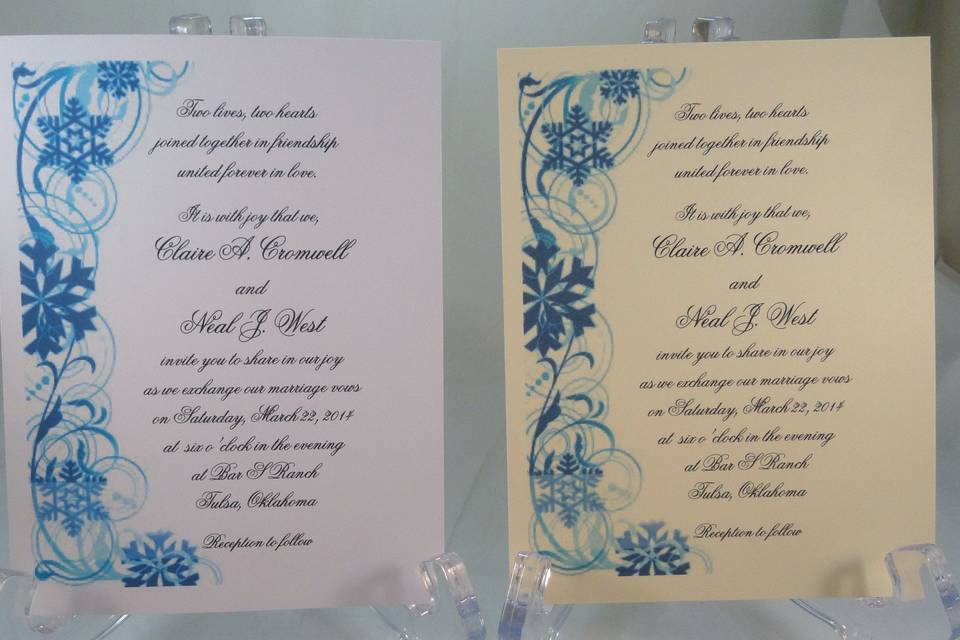 Two lives, two hearts
joined together in friendship
united forever in love.
It is with joy that we,
Claire A. Cromwell
and
Neal J. West
invite you to share in our joy
as we exchange our marriage vows
on Saturday, March 22, 2014
at six o'clock in the evening
at Bar S Ranch
Tulsa, Oklahoma
Reception to follow
Two lives, two hearts
joined together in friendship
united forever in love.
It is with joy that we,
Claire A. Cromwell
and
Neal J. West
invite you to share in our joy
as we exchange our marriage vows
on Saturday, March 22, 2014
at six o'clock in the evening
at Bar S Ranch
Tulsa, Oklahoma
Reception to follow